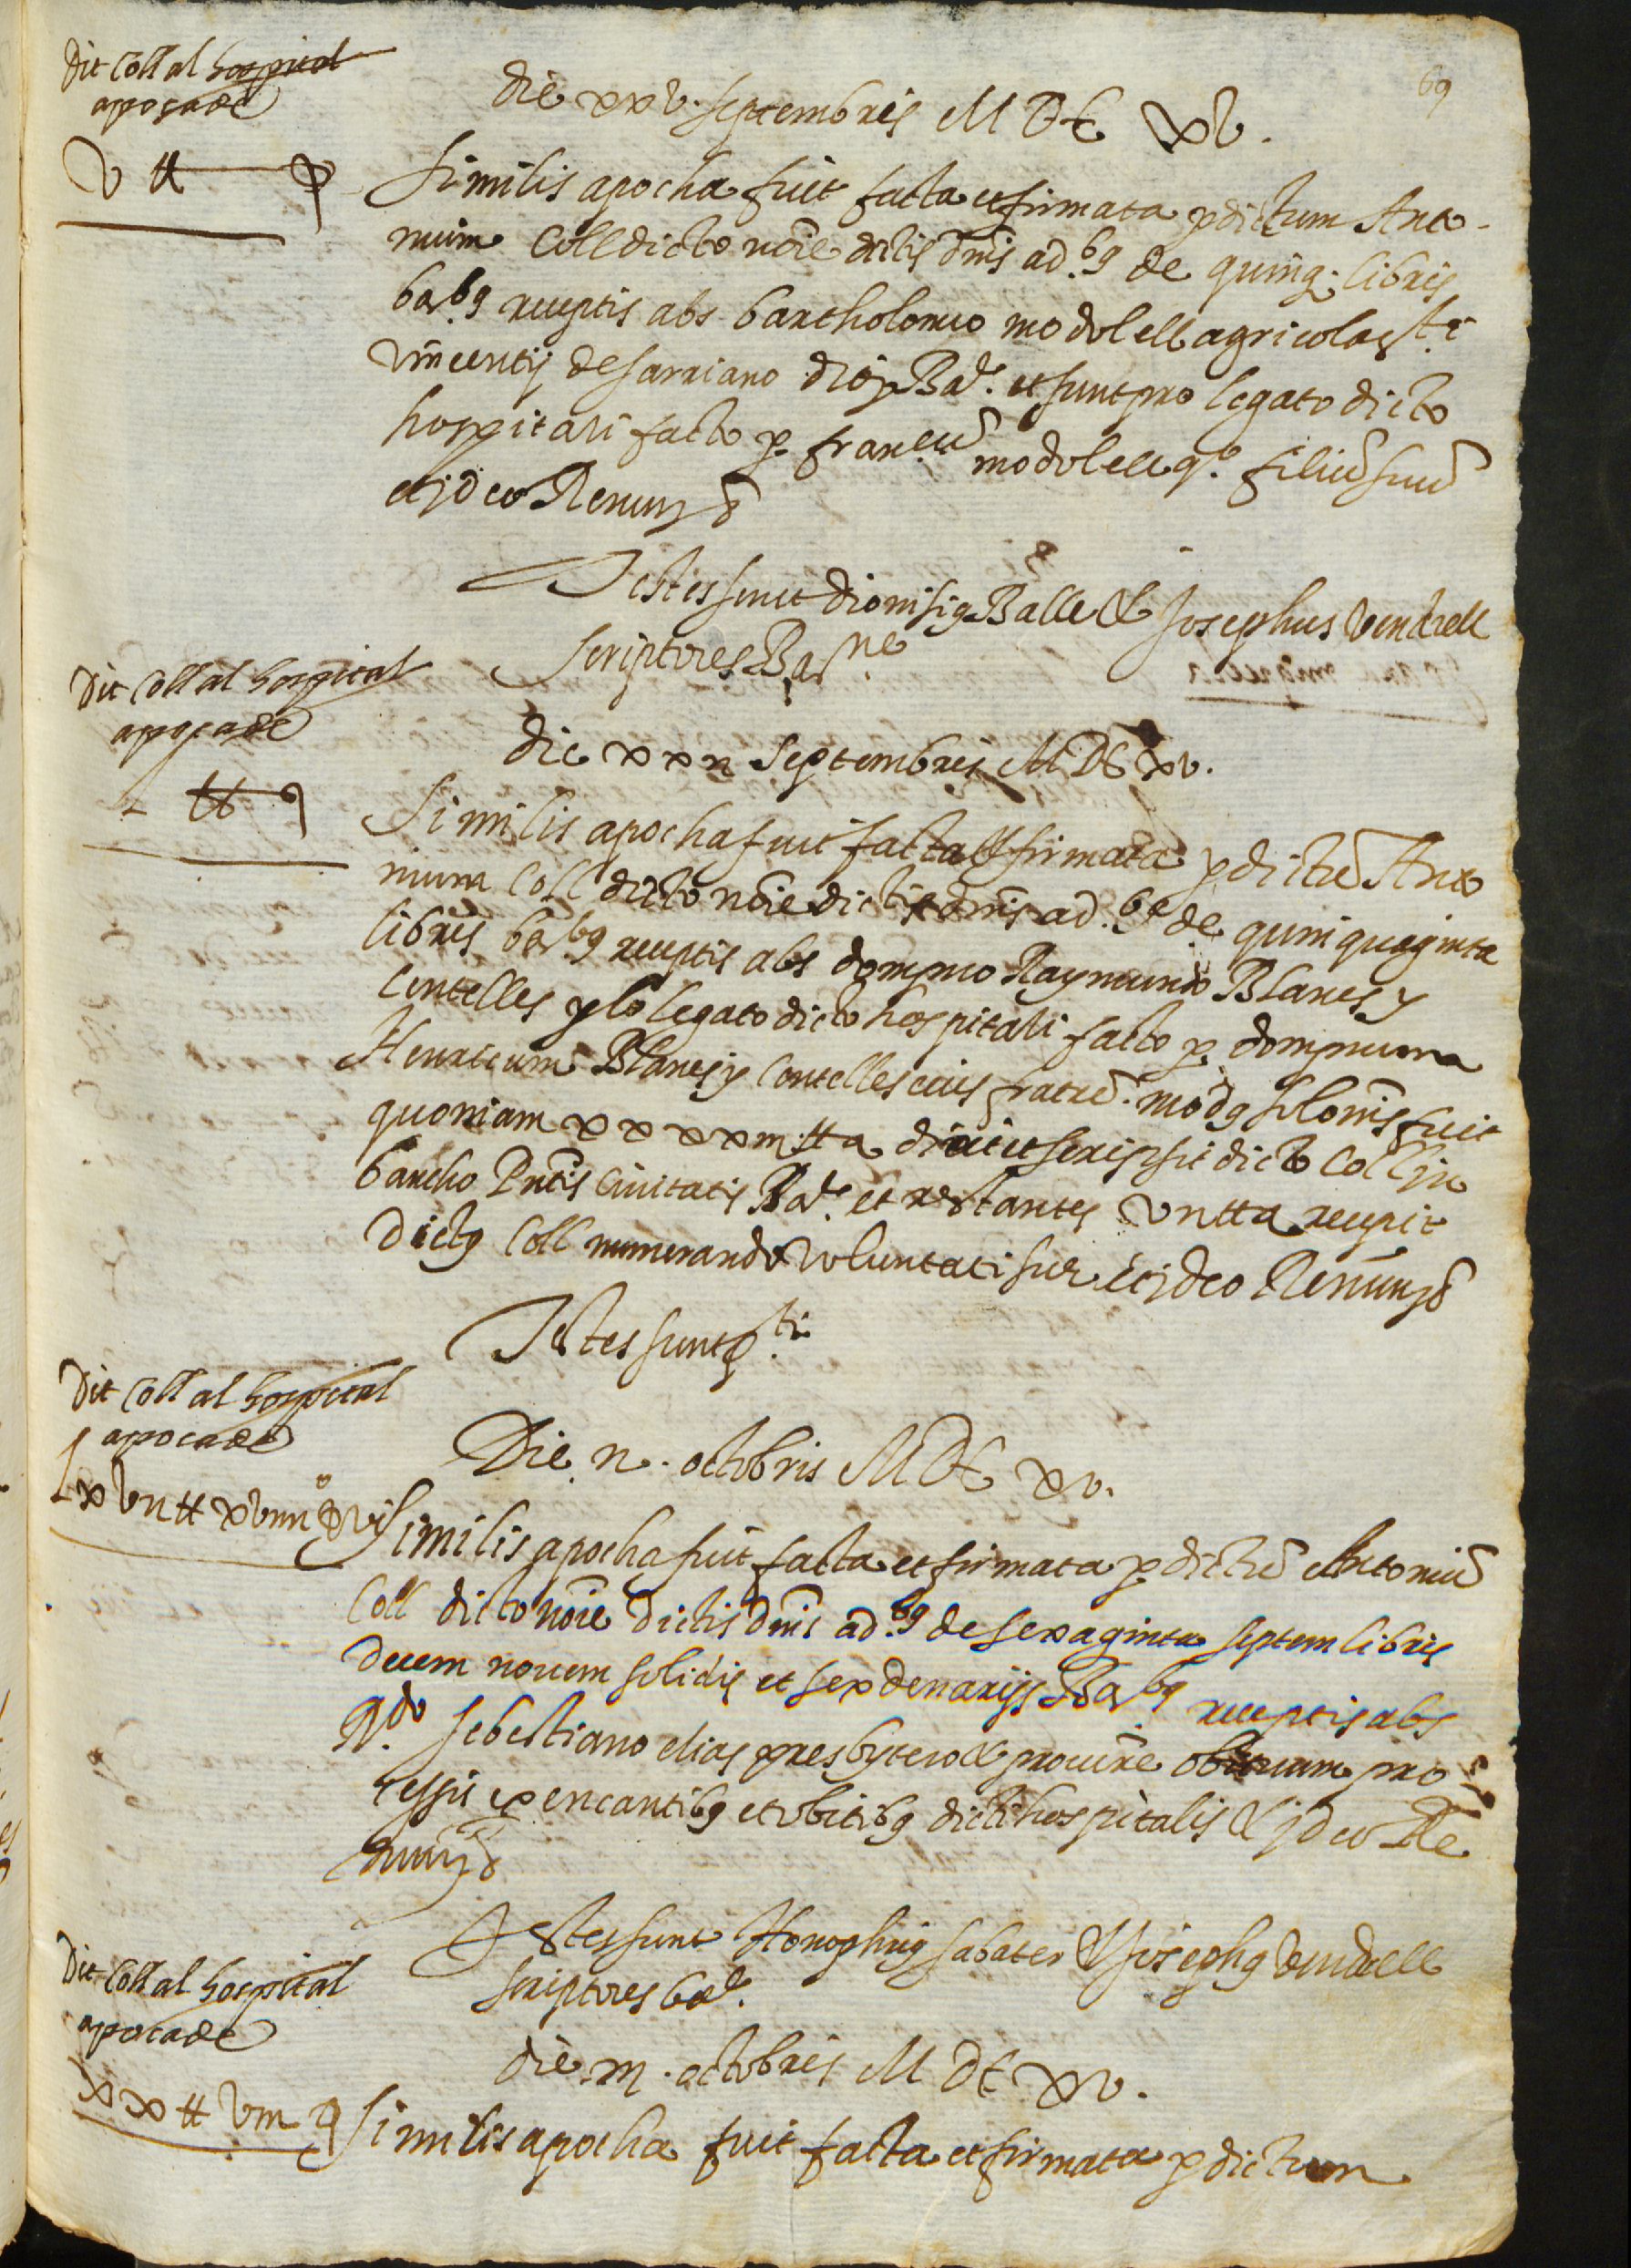 69
Dit Coll al hospital
apoca de
V ₶ ꝑ
die xxv. septembris M DC XV.
Similis apocha fuit facta et firmata ꝑ dictum Anto-
nium Coll dicto nõie dictis dnis ad.bꝯ de quinqꝫ libris
bar.bꝯ receptis abs bartholomeo modolell agricola sti.
vincentij de sarriano dioy Bar. et sunt pro legato dicto
hospitali facto ꝑ franͨũ modolell qº. filiũ suũ
et jdeo Renuns
Testes sunt dionisiꝯ Balle & Josephus Vendrell
scriptores Barne.
Dit Coll al hospital
apoca de
L ₶ ꝯ
die xxvı septembris M DC xv.
Similis apocha fuit facta & firmata ꝑ dictũ Anto
nium Coll dicto nõie dictis dnis ad.bꝯ de quinquaginta
libris bar.bꝯ receptis abs dompno Raymundo Blanes y
Centelles ꝑ lo legato dicto hospitali facto ꝑ dompnum
Henricum Blanes y Centelles eius fratrẽ. modꝯ solonis fuit
quoniam xxxxııı ₶ a dixit et scripsit dicto Coll in
bancho pñtis Civitatis Bar. et restantes vıı ₶ a recepit
dictꝯ Coll numerando voluntati suæ et jdeo Renuns
Testes sunt ꝑ.ti
Dit Coll al hospital
apoca de
Lxvıı ₶ xvıııı ꝯ vj
Die ıı. octobris M DC xv.
Similis apocha fuit facta et firmata ꝑ dictũ Antoniũ
Coll dicto nõie dictis dnis ad.bꝯ de sexaginta septem libris
decem novem solidis et sex denarijs Bar.bꝯ receptis abs
Rdo. sebestiano elias presbytero & procure obituum pro
cessis ex encantibꝯ et obitibꝯ dicti hospitalis & jdeo Re
nuns
Testes sunt Honophriꝯ sabater & Josephꝯ Vendrell
scriptores bar.
Dit Coll al hospital
apoca de
xx ₶ vııı ꝯ
die ııı. octobris M DC xv.
Similis apocha fuit facta et firmata ꝑ dictum